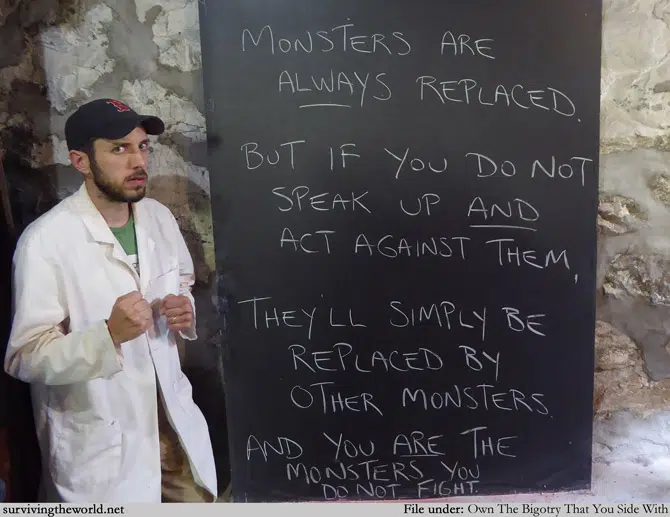 MONSTERS ARE
ALWAYS REPLACED.
BUT IF YOU DO NOT
SPEAK UP AND
ACT AGAINST THEM,
THEY'LL SIMPLY BE
REPLACED BY
OTHER MONSTERS.
AND YOU ARE THE
MONSTERS YOU
DO NOT FIGHT.
survivingtheworld.net
File under: Own The Bigotry That You Side With